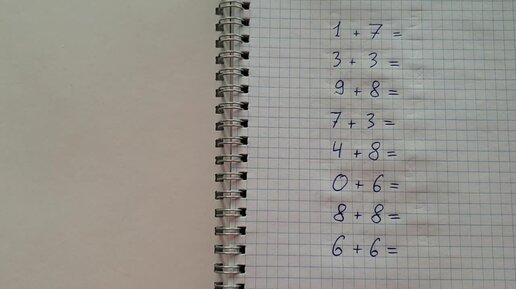 1 + 7 =
3 + 3 =
9 + 8 =
7 + 3 =
4 + 8 =
0 + 6 =
8 + 8 =
6 + 6 =